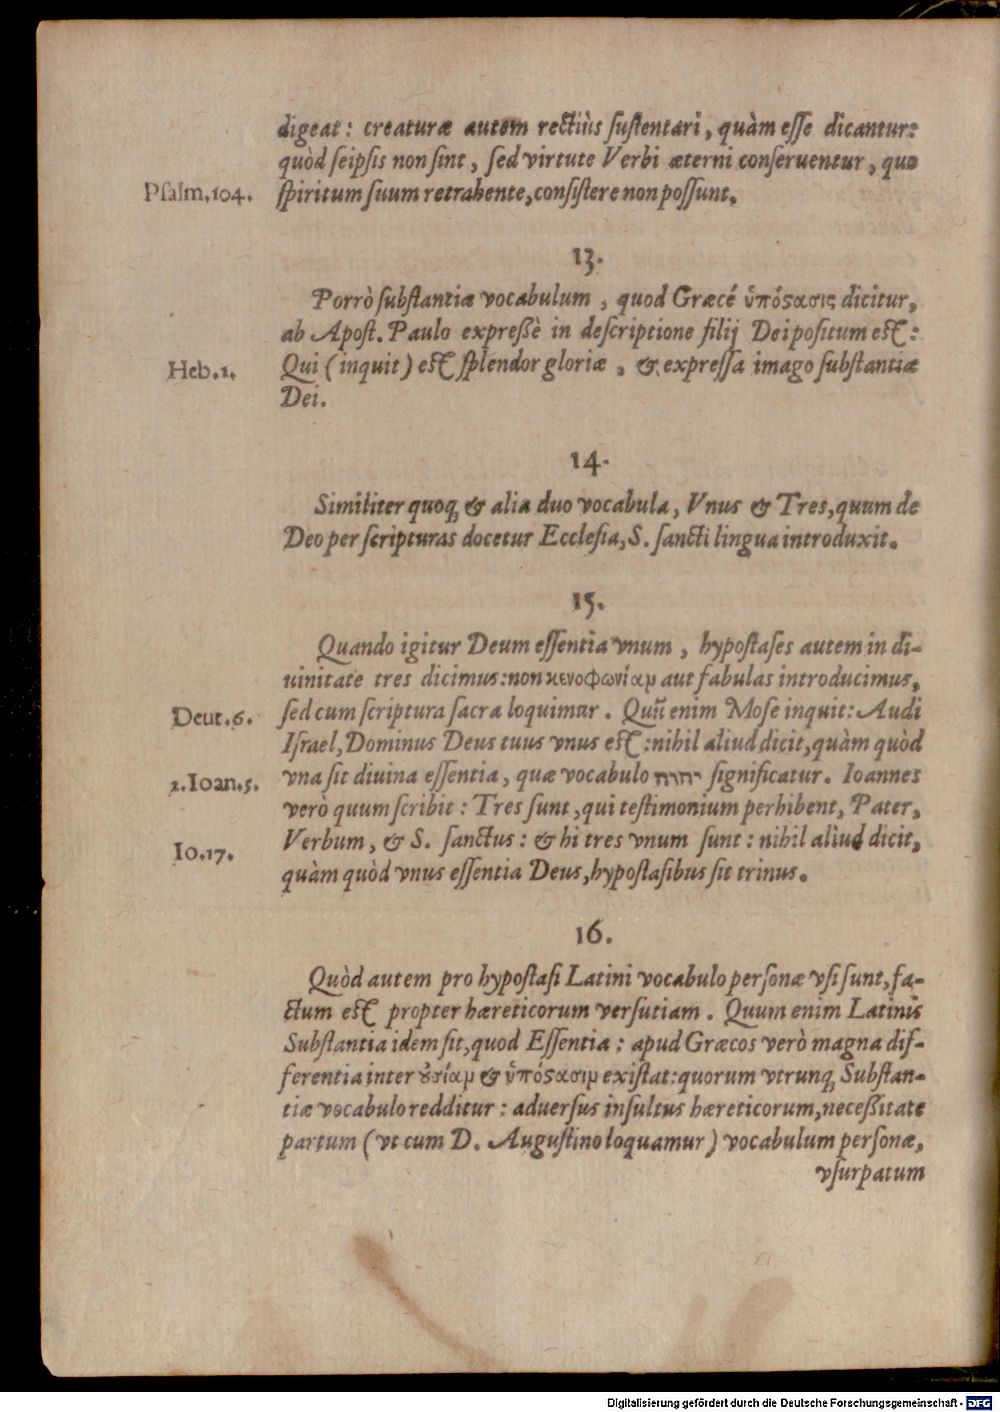 digeat: creaturæ autem rectiùs ſuſtentari, quàm eſſe dicantur:
quòd ſeipſis non ſint, ſed virtute Verbi æterni conſeruentur, quo
Pſalm. 104. ſpiritum ſuum retrahente, conſiſtere non poſſunt.
13.
Porrò ſubſtantiæ vocabulum, quod Græcé ὑπόϛασις dicitur,
ab Apoſt. Paulo expreßè in deſcriptione filij Dei poſitum eſt:
Heb. 1. Qui (inquit) eſt ſplendor gloriæ, & expreſſa imago ſubſtantiæ
Dei.
14.
Similiter quoq; & alia duo vocabula, Vnus & Tres, quum de
Deo per ſcripturas docetur Eccleſia, S. ſancti lingua introduxit.
15.
Quando igitur Deum eſſentia vnum, hypoſtaſes autem in di-
uinitate tres dicimus: non κενοφωνίαμ aut fabulas introducimus,
Deut. 6. ſed cum ſcriptura ſacra loquimur. Quū enim Moſe inquit: Audi
Iſrael, Dominus Deus tuus vnus eſt: nihil aliud dicit, quàm quòd
2. Ioan. 5. vna ſit diuina eſſentia, quæ vocabulo יהוה ſignificatur. Ioannes
verò quum ſcribit: Tres ſunt, qui teſtimonium perhibent, Pater,
Io. 17. Verbum, & S. ſanctus: & hi tres vnum ſunt: nihil aliud dicit,
quàm quòd vnus eſſentia Deus, hypoſtaſibus ſit trinus.
16.
Quòd autem pro hypoſtaſi Latini vocabulo perſonæ vſi ſunt, fa-
ctum eſt propter hæreticorum verſutiam. Quum enim Latinis
Subſtantia idem ſit, quod Eſſentia: apud Græcos verò magna dif-
ferentia inter ȣσίαμ & ὑπόϛασιμ exiſtat: quorum vtrunq; Subſtan-
tiæ vocabulo redditur: aduerſus inſultus hæreticorum, neceßitate
partum (vt cum D. Auguſtino loquamur) vocabulum perſonæ,
vſurpatum
Digitalisierung gefördert durch die Deutsche Forschungsgemeinschaft - DFG